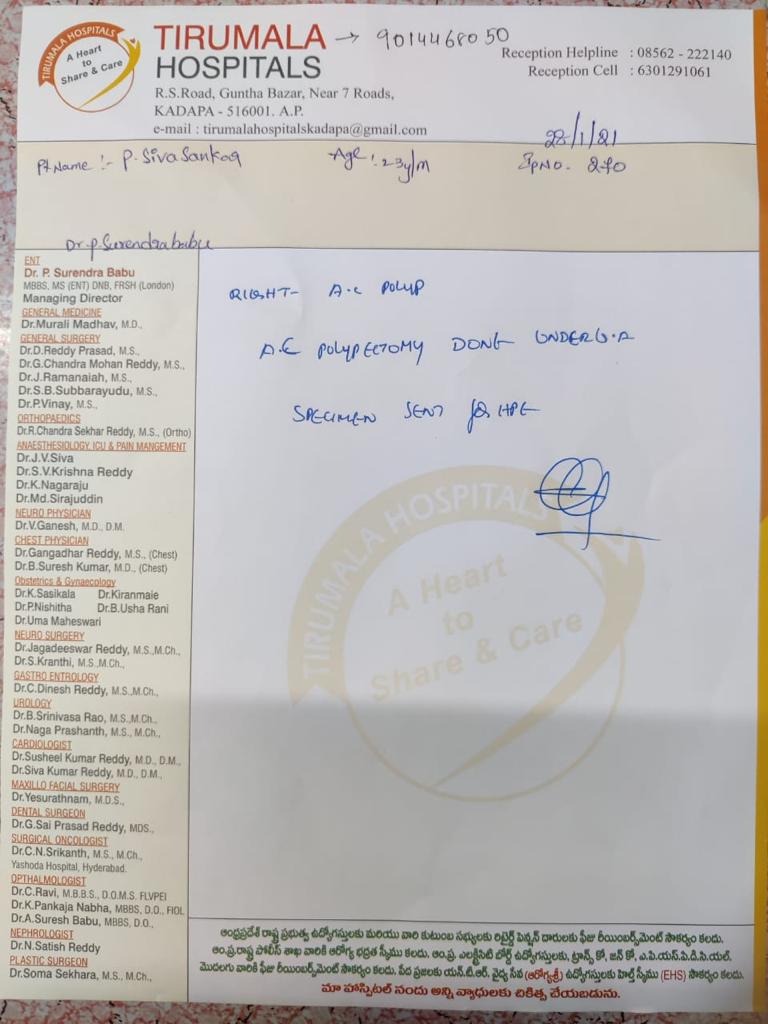 TIRUMALA HOSPITALS
A Heart
to
Share & Care
TIRUMALA → 9014468050
HOSPITALS
R.S.Road, Guntha Bazar, Near 7 Roads,
KADAPA - 516001. A.P.
e-mail : tirumalahospitalskadapa@gmail.com
Reception Helpline : 08562 - 222140
Reception Cell : 6301291061
28/1/21
Pt Name :- P. Sivasankar Age : 23y/M IpNo. 270
Dr. P. Surendrababu
ENT
Dr. P. Surendra Babu
MBBS, MS (ENT) DNB, FRSH (London)
Managing Director
GENERAL MEDICINE
Dr.Murali Madhav, M.D.,
GENERAL SURGERY
Dr.D.Reddy Prasad, M.S.,
Dr.G.Chandra Mohan Reddy, M.S.,
Dr.J.Ramanaiah, M.S.,
Dr.S.B.Subbarayudu, M.S.,
Dr.P.Vinay, M.S.,
ORTHOPAEDICS
Dr.R.Chandra Sekhar Reddy, M.S., (Ortho)
ANAESTHESIOLOGY, ICU & PAIN MANGEMENT
Dr.J.V.Siva
Dr.S.V.Krishna Reddy
Dr.K.Nagaraju
Dr.Md.Sirajuddin
NEURO PHYSICIAN
Dr.V.Ganesh, M.D., D.M.
CHEST PHYSICIAN
Dr.Gangadhar Reddy, M.S., (Chest)
Dr.B.Suresh Kumar, M.D., (Chest)
Obstetrics & Gynaecology
Dr.K.Sasikala Dr.Kiranmaie
Dr.P.Nishitha Dr.B.Usha Rani
Dr.Uma Maheswari
NEURO SURGERY
Dr.Jagadeeswar Reddy, M.S.,M.Ch.,
Dr.S.Kranthi, M.S.,M.Ch.,
GASTRO ENTROLOGY
Dr.C.Dinesh Reddy, M.S.,M.Ch.,
UROLOGY
Dr.B.Srinivasa Rao, M.S.,M.Ch.,
Dr.Naga Prashanth, M.S., M.Ch.,
CARDIOLOGIST
Dr.Susheel Kumar Reddy, M.D., D.M.,
Dr.Siva Kumar Reddy, M.D., D.M.,
MAXILLO FACIAL SURGERY
Dr.Yesurathnam, M.D.S.,
DENTAL SURGEON
Dr.G.Sai Prasad Reddy, MDS.,
SURGICAL ONCOLOGIST
Dr.C.N.Srikanth, M.S., M.Ch.,
Yashoda Hospital, Hyderabad.
OPTHALMOLOGIST
Dr.C.Ravi, M.B.B.S., D.O.M.S. FLVPEI
Dr.K.Pankaja Nabha, MBBS, D.O., FIOL
Dr.A.Suresh Babu, MBBS, D.O.,
NEPHROLOGIST
Dr.N.Satish Reddy
PLASTIC SURGEON
Dr.Soma Sekhara, M.S., M.Ch.,
RIGHT- A.C POLYP
A.C POLYPECTOMY DONE UNDER G.A
SPECIMEN SENT for HPE
TIRUMALA HOSPITALS
A Heart
to
Share & Care
ఆంధ్రప్రదేశ్ రాష్ట్ర ప్రభుత్వ ఉద్యోగస్తులకు మరియు వారి కుటుంబ సభ్యులకు రిటైర్డ్ పెన్షన్ దారులకు ఫీజు రీయింబర్స్‌మెంట్ సౌకర్యం కలదు.
ఆం.ప్ర.రాష్ట్ర పోలీస్ శాఖ వారికి ఆరోగ్య భద్రత స్కీము కలదు. ఆం.ప్ర. ఎలక్ట్రిసిటి బోర్డ్ ఉద్యోగస్తులకు, ట్రాన్స్ కో, జన్ కో, ఎ.పి.యస్.పి.డి.సి.యల్.
మొదలగు వారికి ఫీజు రీయింబర్స్‌మెంట్ సౌకర్యం కలదు. పేద ప్రజలకు యన్.టి.ఆర్. వైద్య సేవ (ఆరోగ్యశ్రీ) ఉద్యోగస్తులకు హెల్త్ స్కీము (EHS) సౌకర్యం కలదు.
మా హాస్పిటల్ నందు అన్ని వ్యాధులకు చికిత్స చేయబడును.